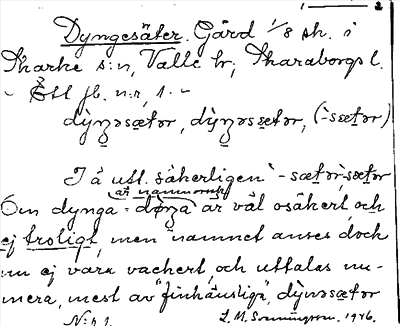 1 — 2
Dyngesäter. Gård 1/8 sh. i
Skarke s:n, Valle hr, Skaraborgs l.
- Ett jb. n:r, 1. -
dyŋəsætər, dỳŋəsætər, (-sætər)
I å utt. säkerligen -sætər, -sætər
är namnorsak
Om dynga = døŋa är väl osäkert, och
ej troligt, men namnet anses dock
nu ej vara vackert, och uttalas nu-
mera, mest av "finhäusliga", dỳŋəsætər
N:r 1. 1946.